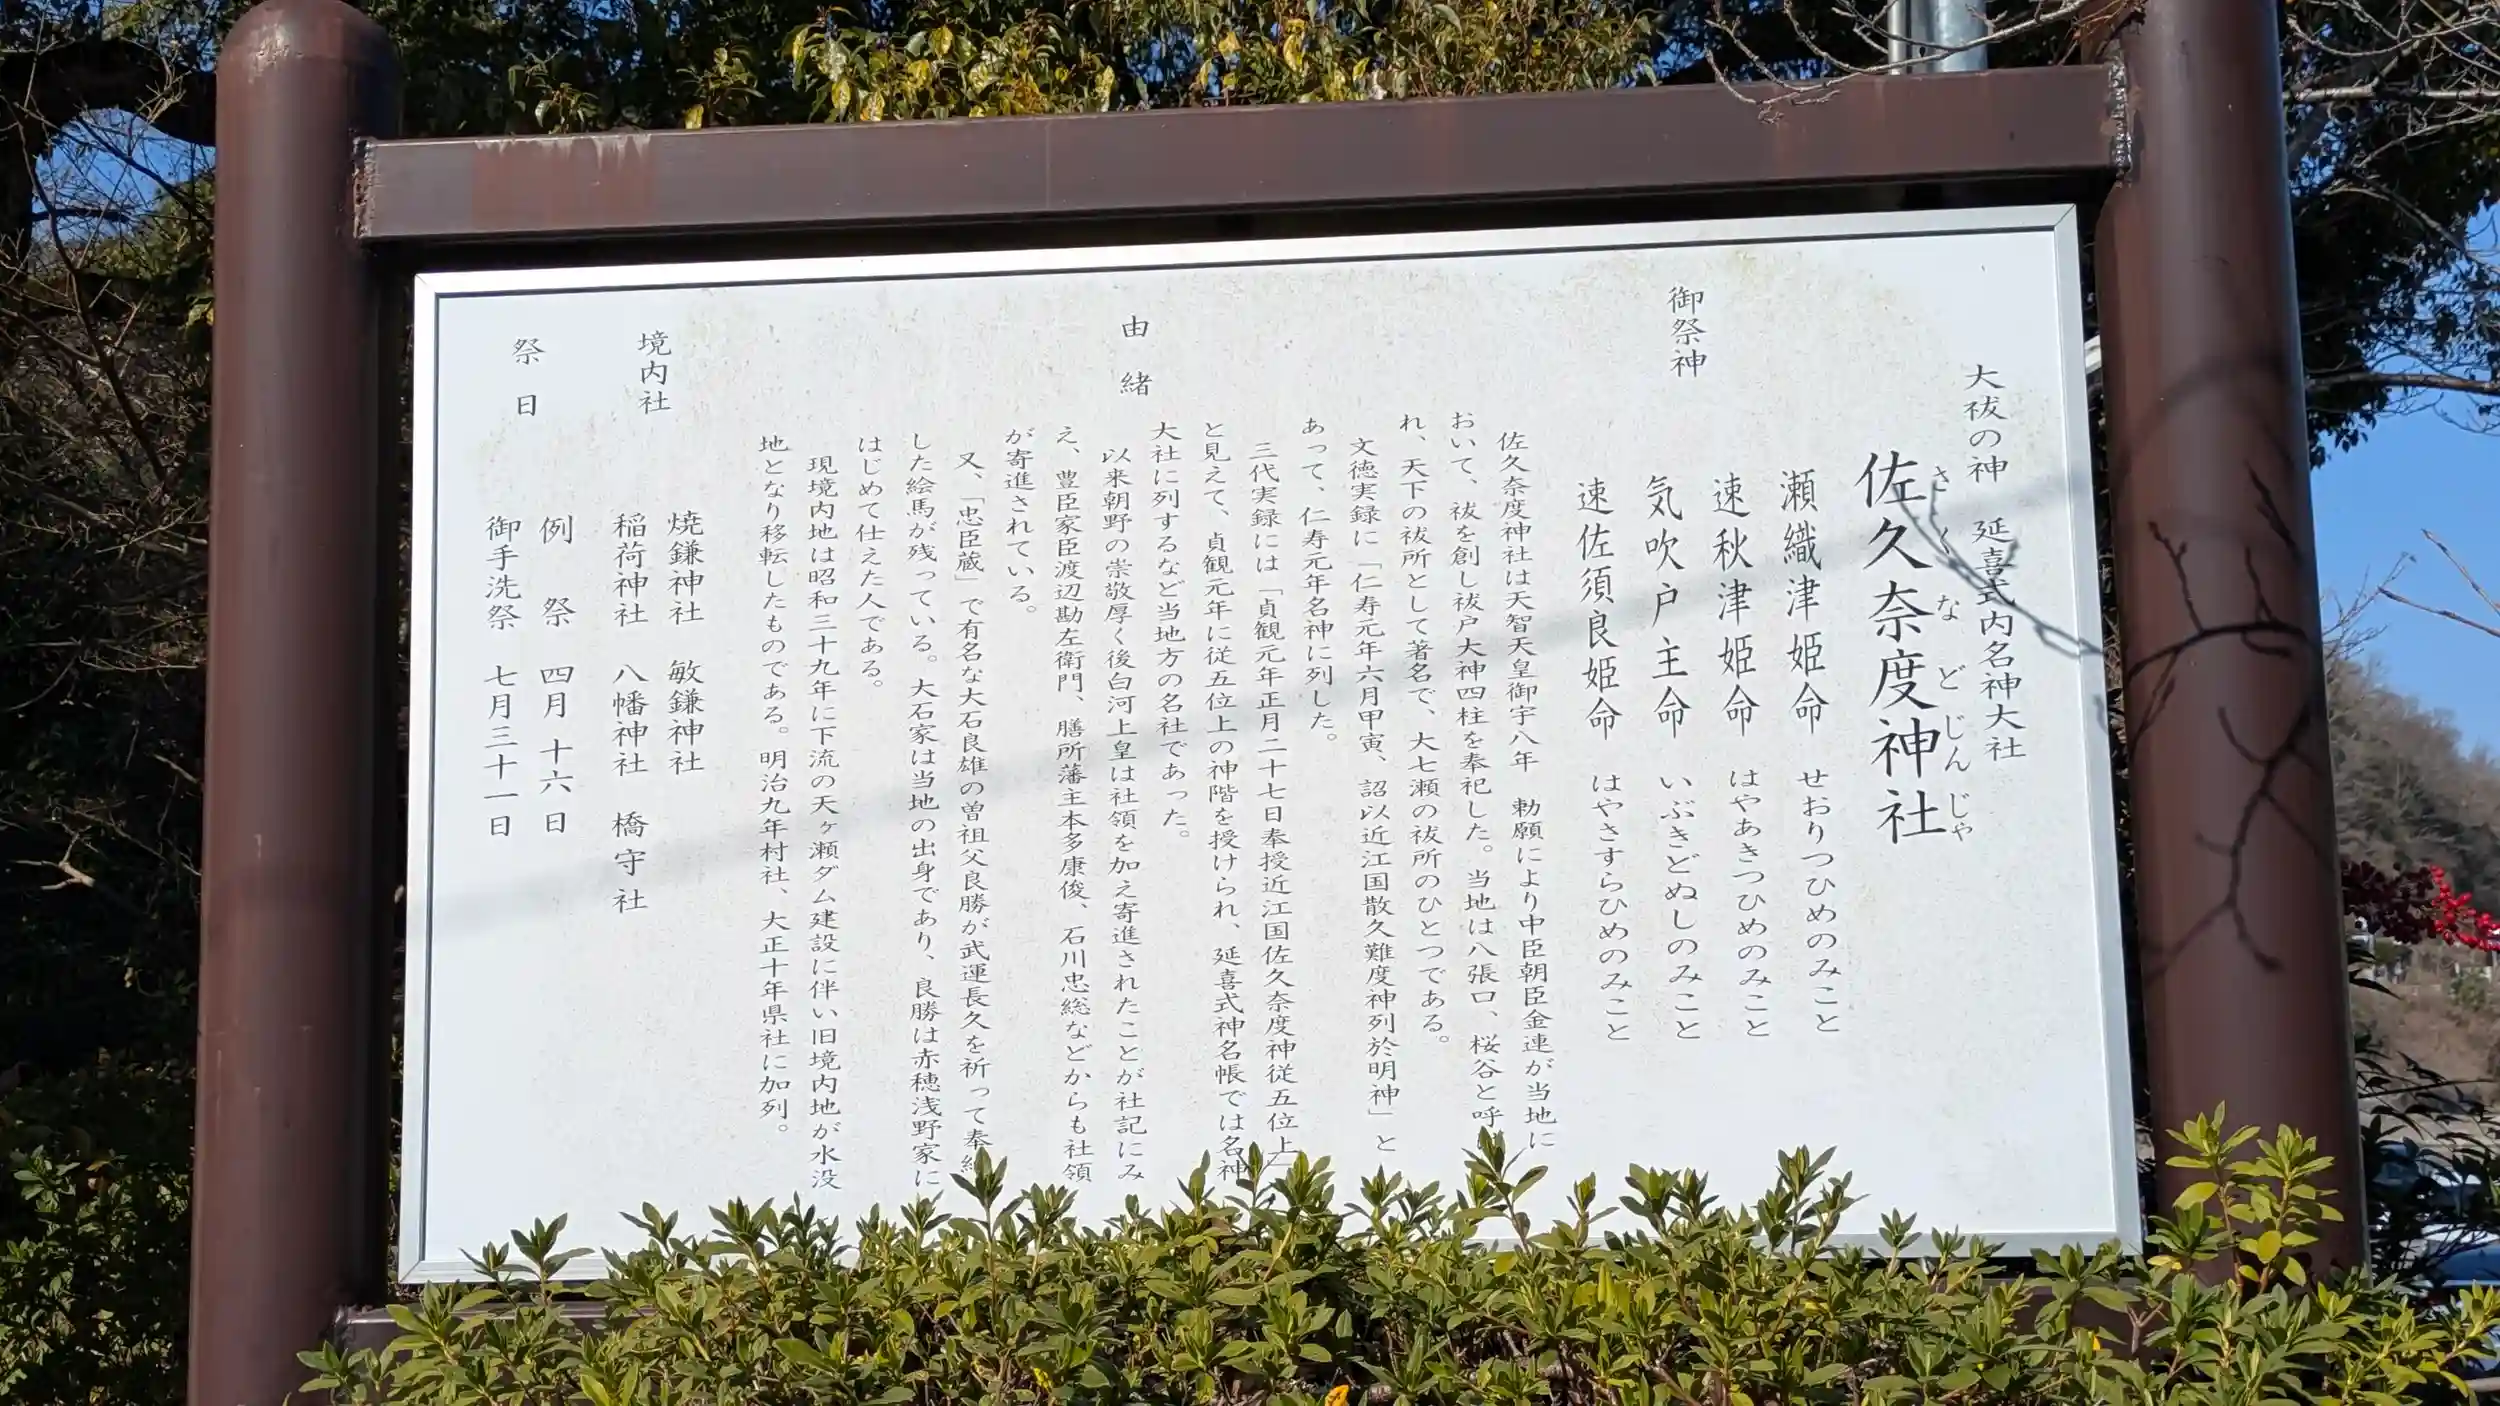 大祓の神　延喜式内名神大社
佐久奈度神社
さくなどじんじゃ
御祭神
瀬織津姫命　せおりつひめのみこと
速秋津姫命　はやあきつひめのみこと
気吹戸主命　いぶきどぬしのみこと
速佐須良姫命　はやさすらひめのみこと
由緒
佐久奈度神社は天智天皇御宇八年　勅願により中臣朝臣金連が当地に
おいて、祓を創し祓戸大神四柱を奉祀した。当地は八張口、桜谷と呼
れ、天下の祓所として著名で、大七瀬の祓所のひとつである。
文徳実録に「仁寿元年六月甲寅、詔以近江国散久難度神列於明神」と
あって、仁寿元年名神に列した。
三代実録には「貞観元年正月二十七日奉授近江国佐久奈度神従五位上」
と見えて、貞観元年に従五位上の神階を授けられ、延喜式神名帳では名神
大社に列するなど当地方の名社であった。
以来朝野の崇敬厚く後白河上皇は社領を加え寄進されたことが社記にみ
え、豊臣家臣渡辺勘左衛門、膳所藩主本多康俊、石川忠総などからも社領
が寄進されている。
又、「忠臣蔵」で有名な大石良雄の曽祖父良勝が武運長久を祈って奉
した絵馬が残っている。大石家は当地の出身であり、良勝は赤穂浅野家に
はじめて仕えた人である。
現境内地は昭和三十九年に下流の天ヶ瀬ダム建設に伴い旧境内地が水没
地となり移転したものである。明治九年村社、大正十年県社に加列。
境内社
焼鎌神社　敏鎌神社
稲荷神社　八幡神社　橋守社
祭日
例祭　四月十六日
御手洗祭　七月三十一日